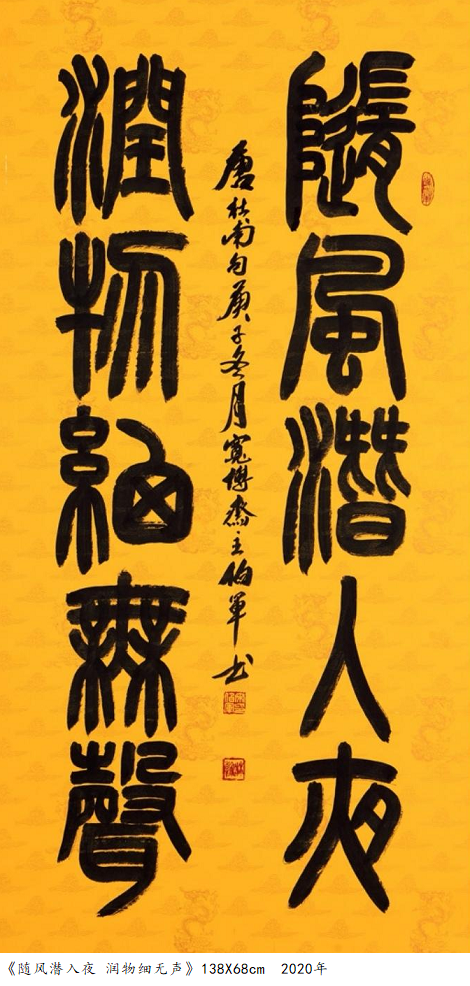 隨風潛入夜
潤物細無聲
唐杜甫句庚子冬月寬博齋主伯軍书
《随风潜入夜 润物细无声》138X68cm 2020年